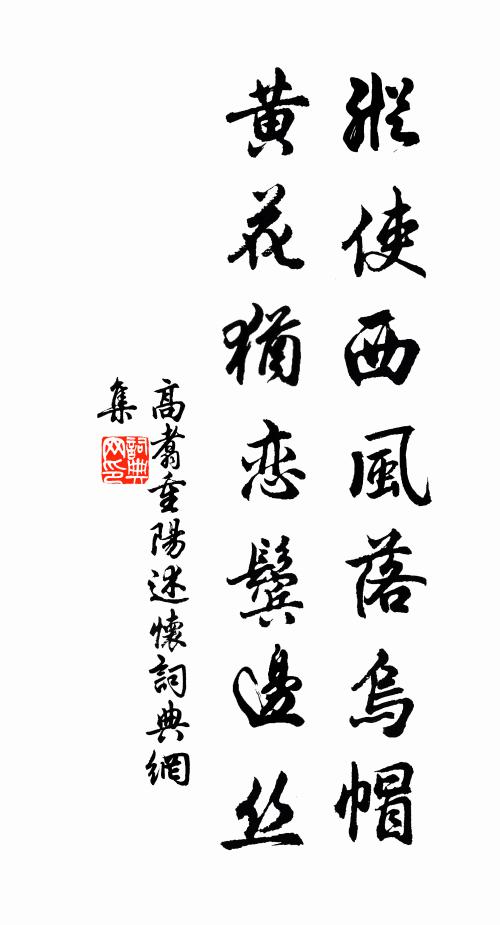 縱使西風落烏帽
黄花猶恋鬓邊丝
高翥重陽述懷詞典網
集
詞典
网印